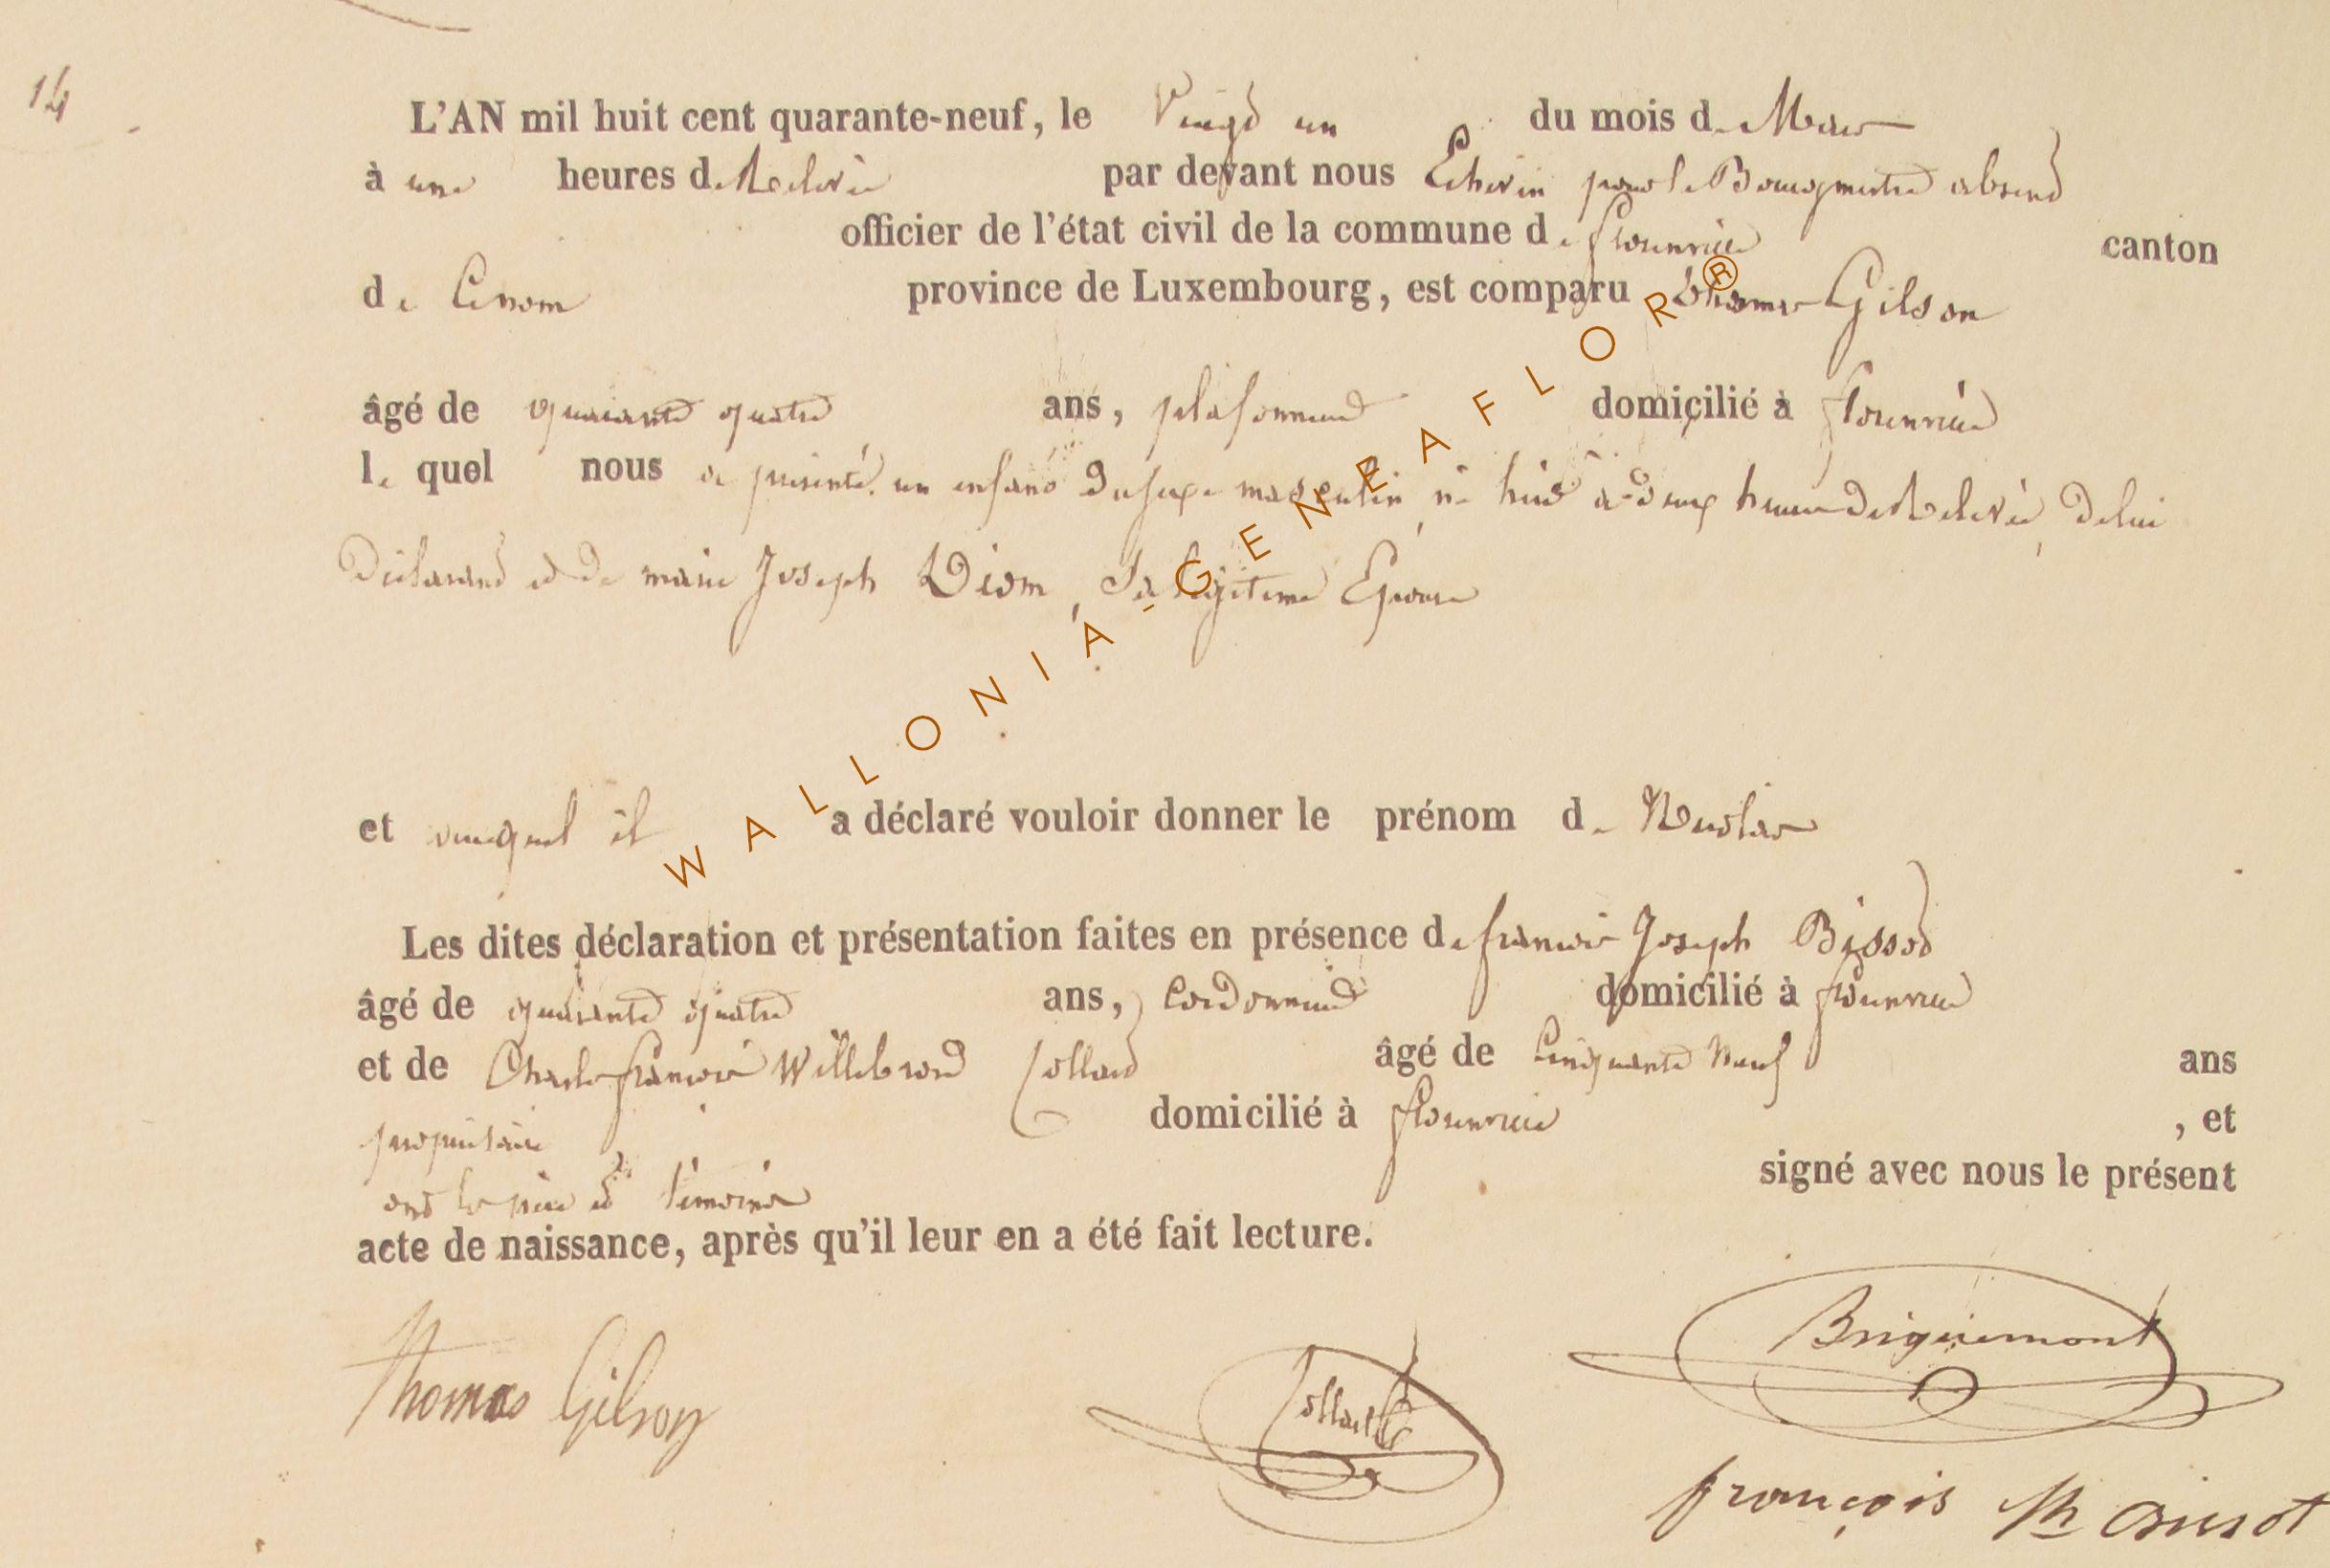 14
L'AN mil huit cent quarante-neuf, le Vingt un du mois de Mars
à une heures de Relevée par devant nous Echevin pour le Bourgmestre absent
officier de l'état civil de la commune de florenville canton
de province de Luxembourg, est comparu Thomas Gilson
âgé de quarante quatre ans, plafonneur domicilié à florenville
le quel nous a présenté un enfant du sexe masculin, né hier à deux heures de Relevée, de lui
Déclarant et de marie Joseph Diom, Sa légitime Epouse
et auquel il a déclaré vouloir donner le prénom de Nicolas
Les dites déclaration et présentation faites en présence de françois Joseph Bissot
âgé de quarante quatre ans, Cordonnier domicilié à florenville
et de Charles françois Willebrord Collard âgé de Cinquante Neuf ans
propriétaire domicilié à florenville , et
ont le père et témoins signé avec nous le présent
acte de naissance, après qu'il leur en a été fait lecture.
Thomas Gilson
Collard
Briquemont
françois Bissot
WALLONIA-GENEAFLOR®